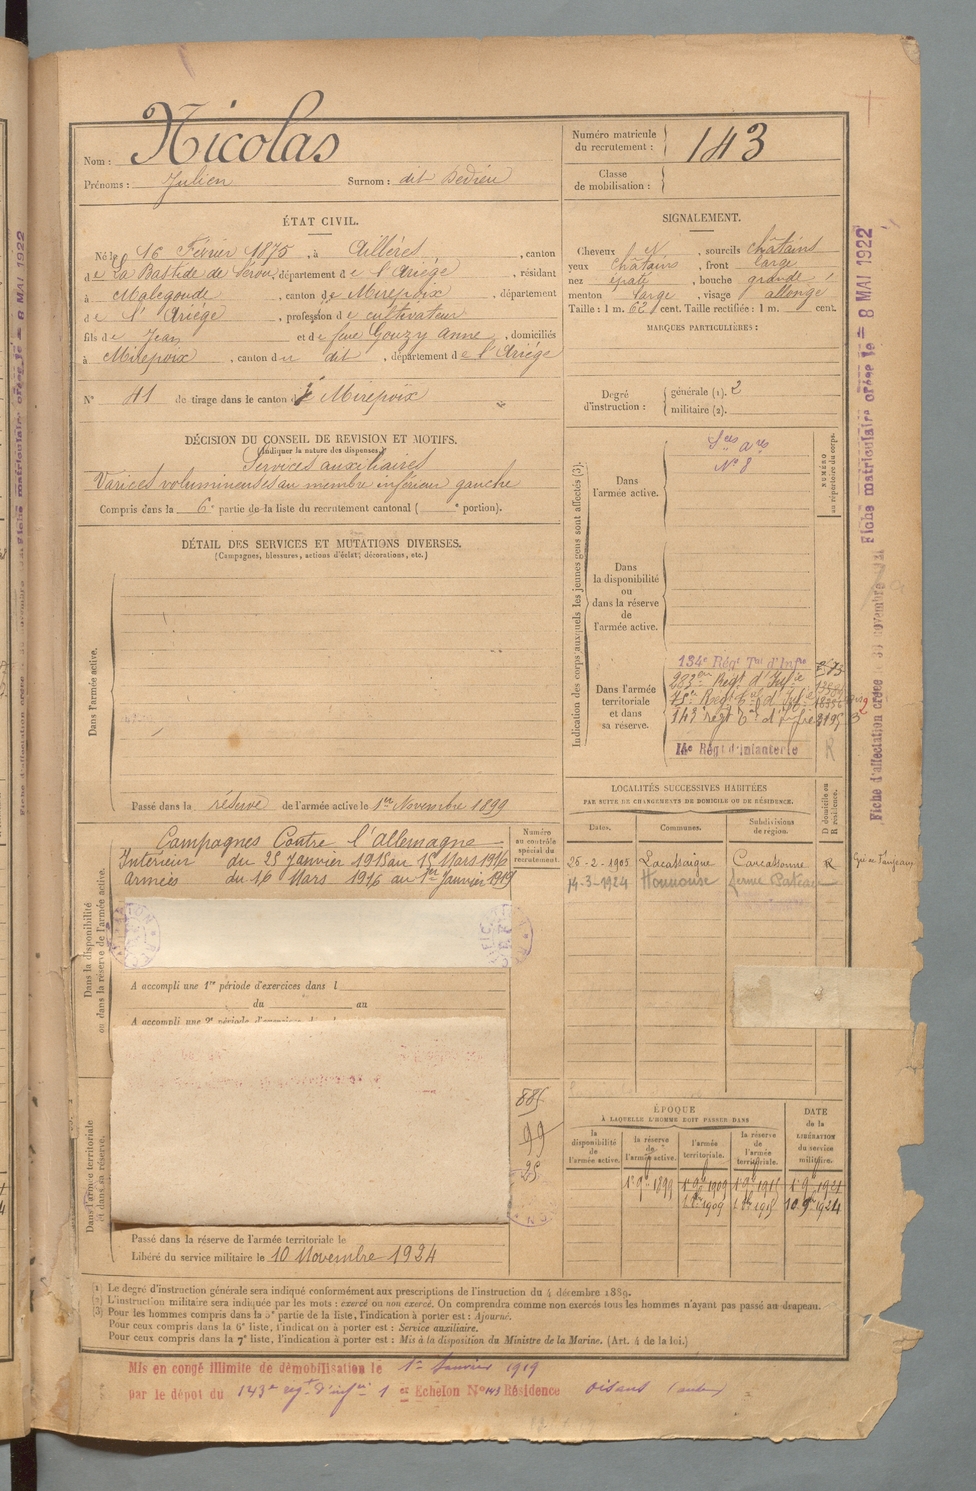 Nom : Nicolas
Prénoms : Julien Surnom : dit Dedieu
Numéro matricule du recrutement : 143
Classe de mobilisation :
ÉTAT CIVIL.
Né le 16 Février 1875, à Aillères, canton
de La Bastide de Sérou, département de l'Ariège, résidant
à Malegoude, canton de Mirepoix, département
de l'Ariège, profession de cultivateur
fils de Jean et de feue Gouzy Anne, domiciliés
à Mirepoix, canton du dit, département de l'Ariège
N° 41 de tirage dans le canton de Mirepoix
SIGNALEMENT.
Cheveux N, sourcils châtains
yeux châtains, front large
nez épaté, bouche grande
menton large, visage allongé
Taille : 1 m. 62 cent. Taille rectifiée : 1 m. cent.
MARQUES PARTICULIÈRES :
Degré d'instruction : générale (1). 2
militaire (2).
DÉCISION DU CONSEIL DE REVISION ET MOTIFS.
(Indiquer la nature des dispenses.)
Services auxiliaires
Varices volumineuses au membre inférieur gauche
Compris dans la 6e partie de la liste du recrutement cantonal ( e portion).
DÉTAIL DES SERVICES ET MUTATIONS DIVERSES.
(Campagnes, blessures, actions d'éclat, décorations, etc.)
Dans l'armée active.
Passé dans la réserve de l'armée active le 1er Novembre 1899
Indication des corps auxquels les jeunes gens sont affectés (3).
NUMÉRO au répertoire du corps.
Dans l'armée active.
N° 8
Dans la disponibilité ou dans la réserve de l'armée active.
Dans l'armée territoriale et dans sa réserve.
134e Régt Tal d'Infie
143 régt Tal d'Infie
14e Régt d'Infanterie R
LOCALITÉS SUCCESSIVES HABITÉES
PAR SUITE DE CHANGEMENTS DE DOMICILE OU DE RÉSIDENCE.
D domicile ou R résidence.
Dates. Communes. Subdivisions de région.
26-2-1905 Lacassaigne Carcassonne R
14-3-1924
Dans la disponibilité ou dans la réserve de l'armée active.
Numéro au contrôle spécial du recrutement.
Campagnes Contre l'Allemagne
Intérieur du 25 Janvier 1915 au 15 Mars 1916
Armées du 16 Mars 1916 au 1er Janvier 1919
A accompli une 1re période d'exercices dans l
du au
A accompli une 2e période d'exercices dans l
Dans l'armée territoriale et dans sa réserve.
885
99
25
Passé dans la réserve de l'armée territoriale le
Libéré du service militaire le 10 Novembre 1924
ÉPOQUE
À LAQUELLE L'HOMME DOIT PASSER DANS
DATE de la LIBÉRATION du service militaire.
la disponibilité de l'armée active. la réserve de l'armée active. l'armée territoriale. la réserve de l'armée territoriale.
1er 9bre 1899 1er 9bre 1909 1er 9bre 1915 1er 9bre 1921
1909 1915 10 9bre 1924
(1) Le degré d'instruction générale sera indiqué conformément aux prescriptions de l'instruction du 4 décembre 1889.
(2) L'instruction militaire sera indiquée par les mots : exercé ou non exercé. On comprendra comme non exercés tous les hommes n'ayant pas passé au drapeau.
(3) Pour les hommes compris dans la 5e partie de la liste, l'indication à porter est : Ajourné.
Pour ceux compris dans la 6e liste, l'indication à porter est : Service auxiliaire.
Pour ceux compris dans la 7e liste, l'indication à porter est : Mis à la disposition du Ministre de la Marine. (Art. 4 de la loi.)
Mis en congé illimité de démobilisation le 1919
par le dépôt du 143e régt d'infie 1er Echelon N° 143 Résidence
Fiche matriculaire créée le 8 MAI 1922